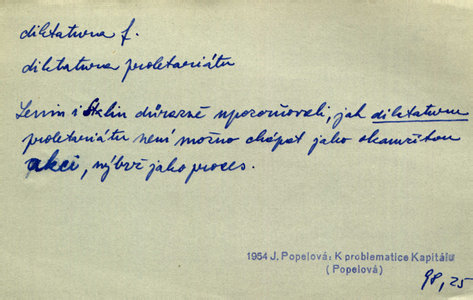 diktatura f.
diktatura proletariátu
Lenin i Stalin důrazně upozorňovali, jak diktaturu
proletariátu není možno chápat jako okamžitou
akci, nýbrž jako proces.
1954 J. Popelová: K problematice Kapitálu
(Popelová)
98, 25